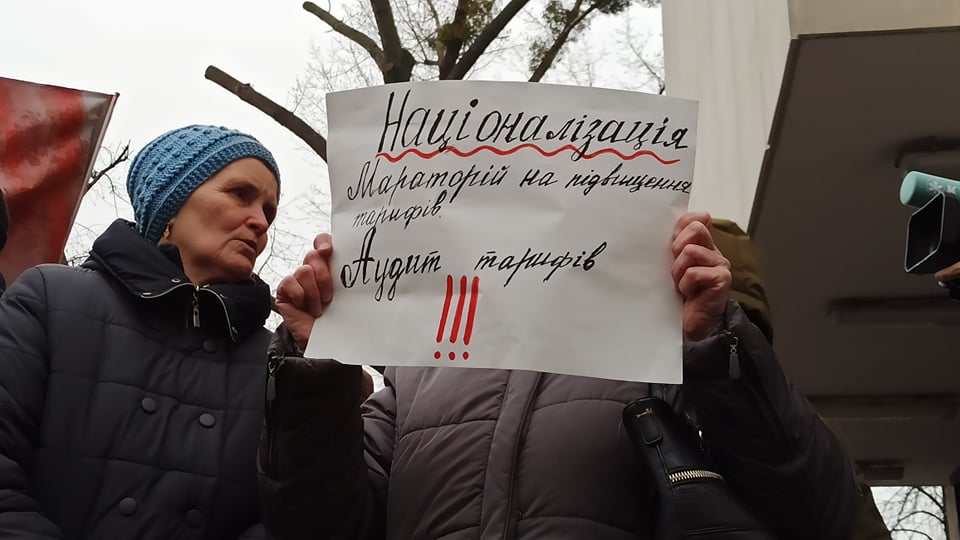 Націоналізація
Мараторій на підвищення
тарифів.
Аудит тарифів
!!!
К